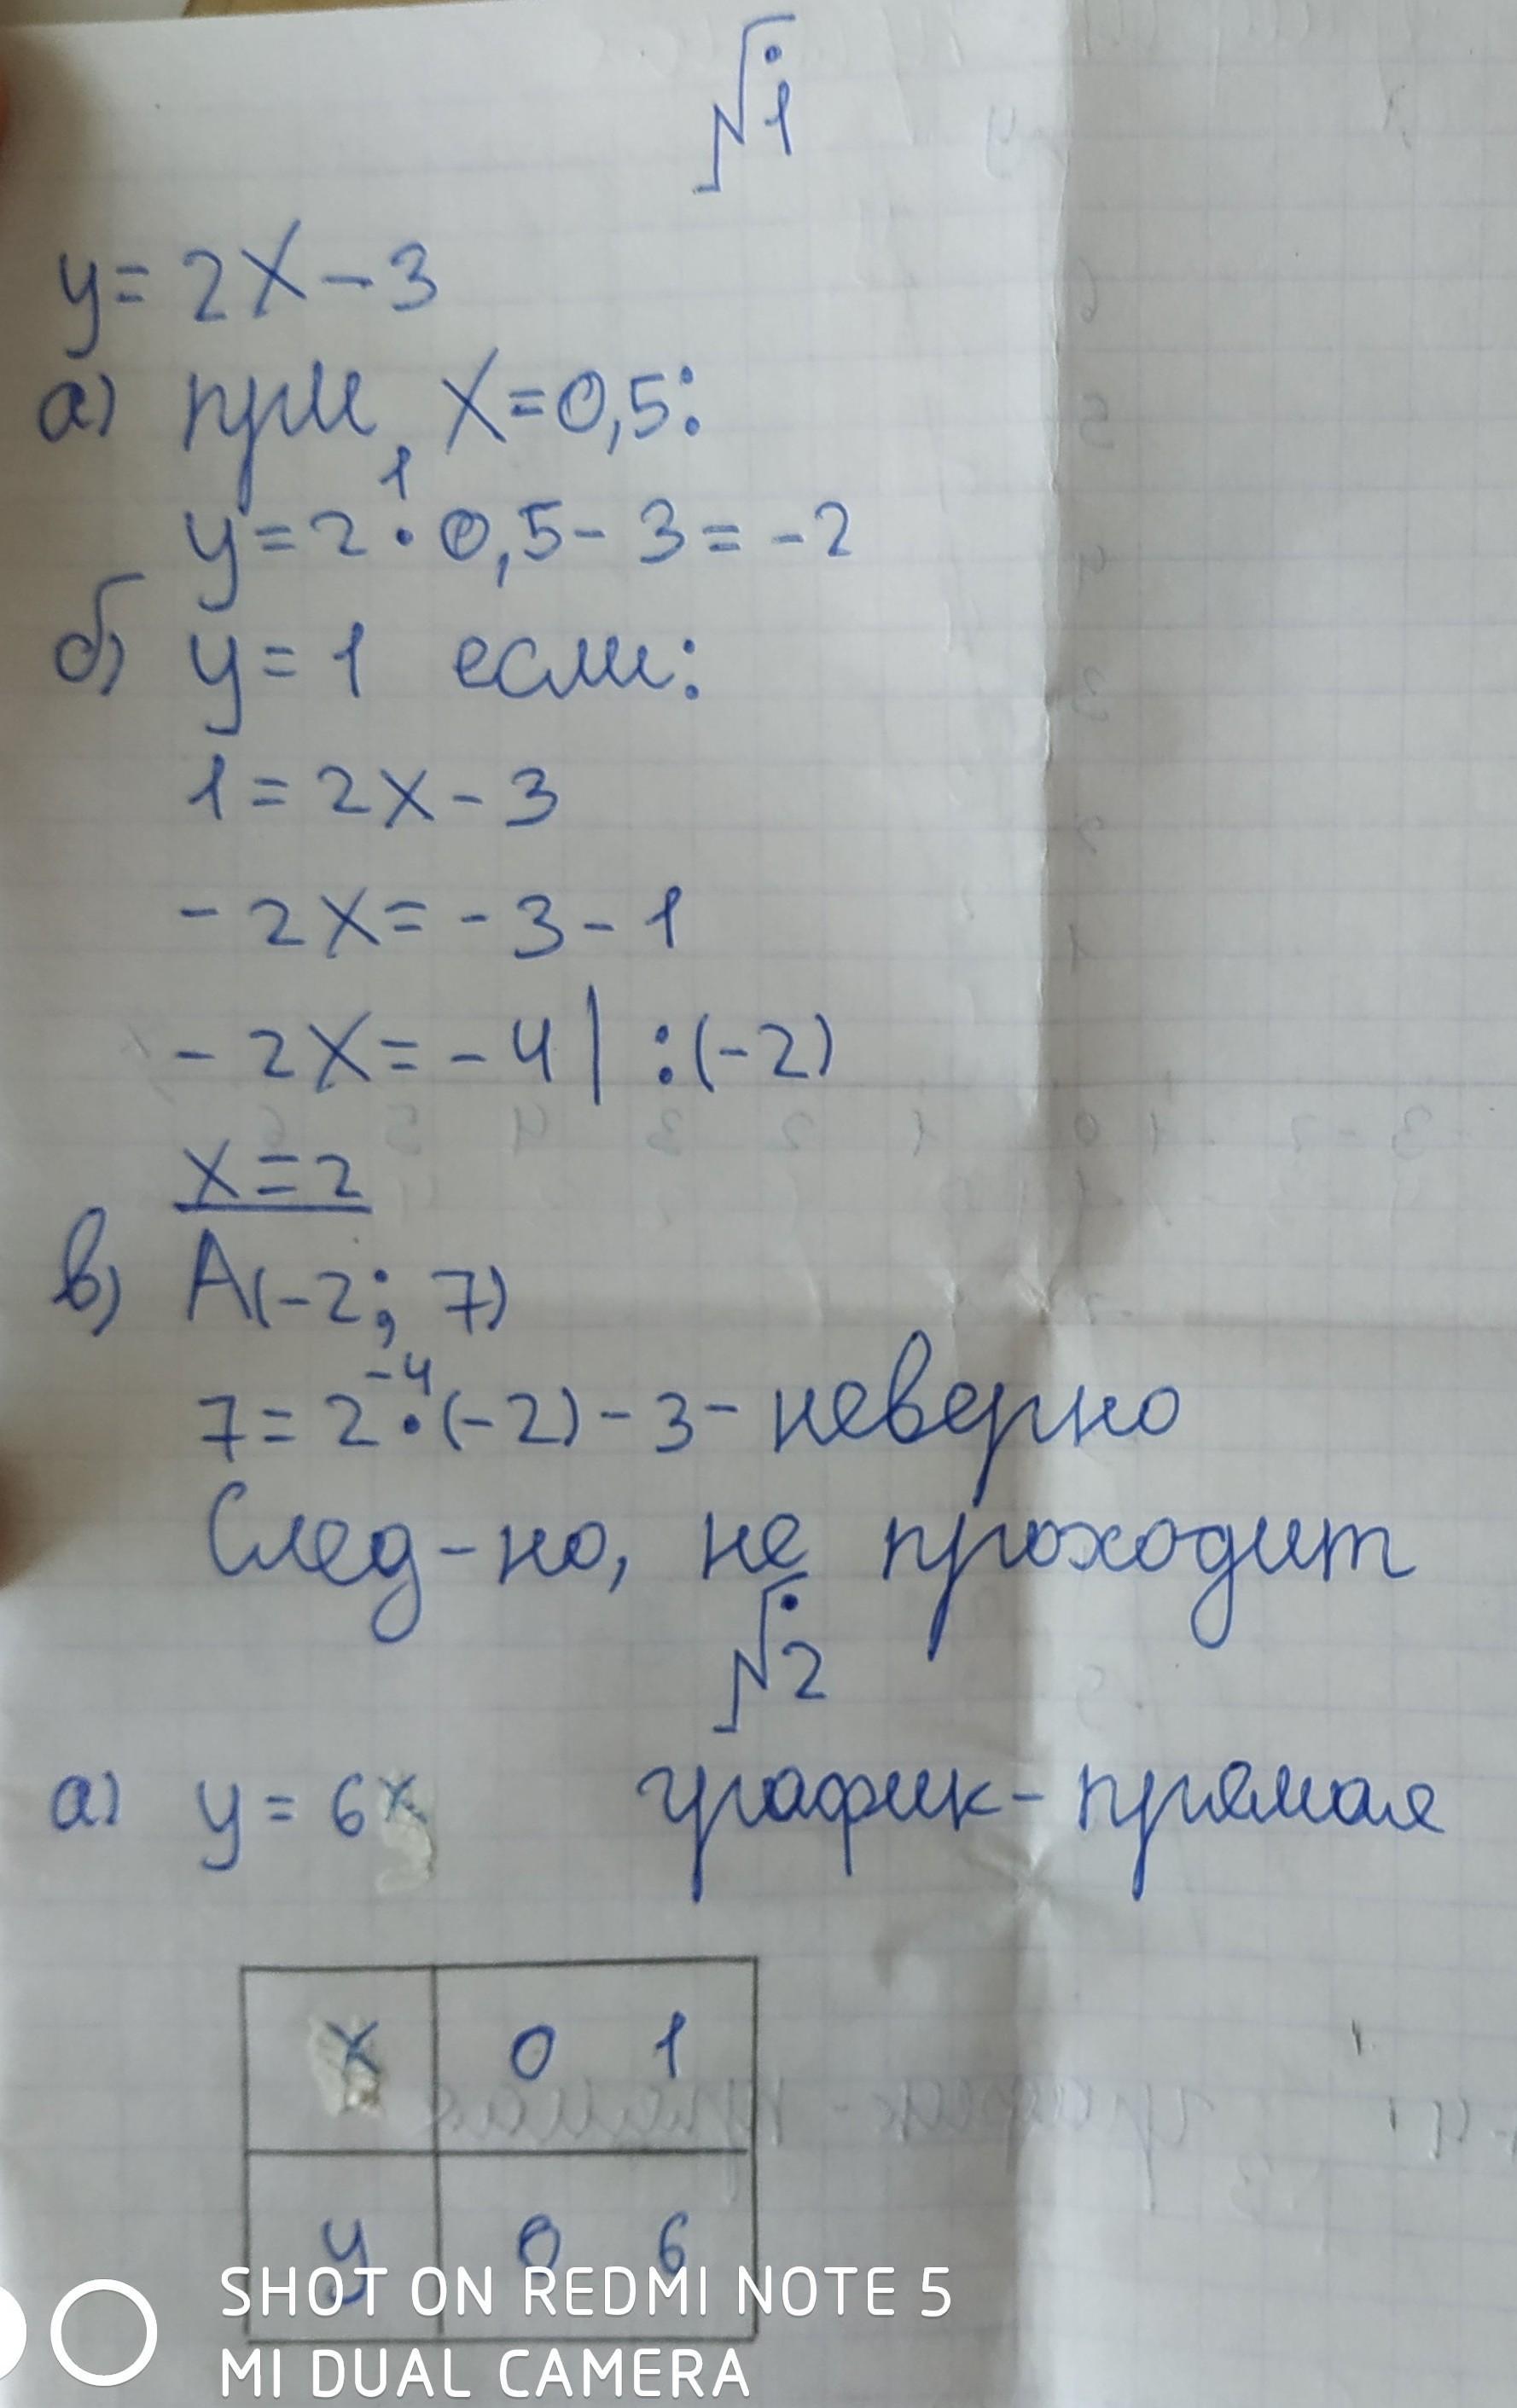 №1
y = 2x - 3
а) при x = 0,5:
1
y = 2 · 0,5 - 3 = -2
б) y = 1 если:
1 = 2x - 3
- 2x = - 3 - 1
- 2x = - 4 | :(-2)
x = 2
в) A(-2; 7)
-4
7 = 2 · (-2) - 3 - неверно
След-но, не проходит
№2
а) y = 6x график - прямая
x 0 1
y 0 6
SHOT ON REDMI NOTE 5
MI DUAL CAMERA